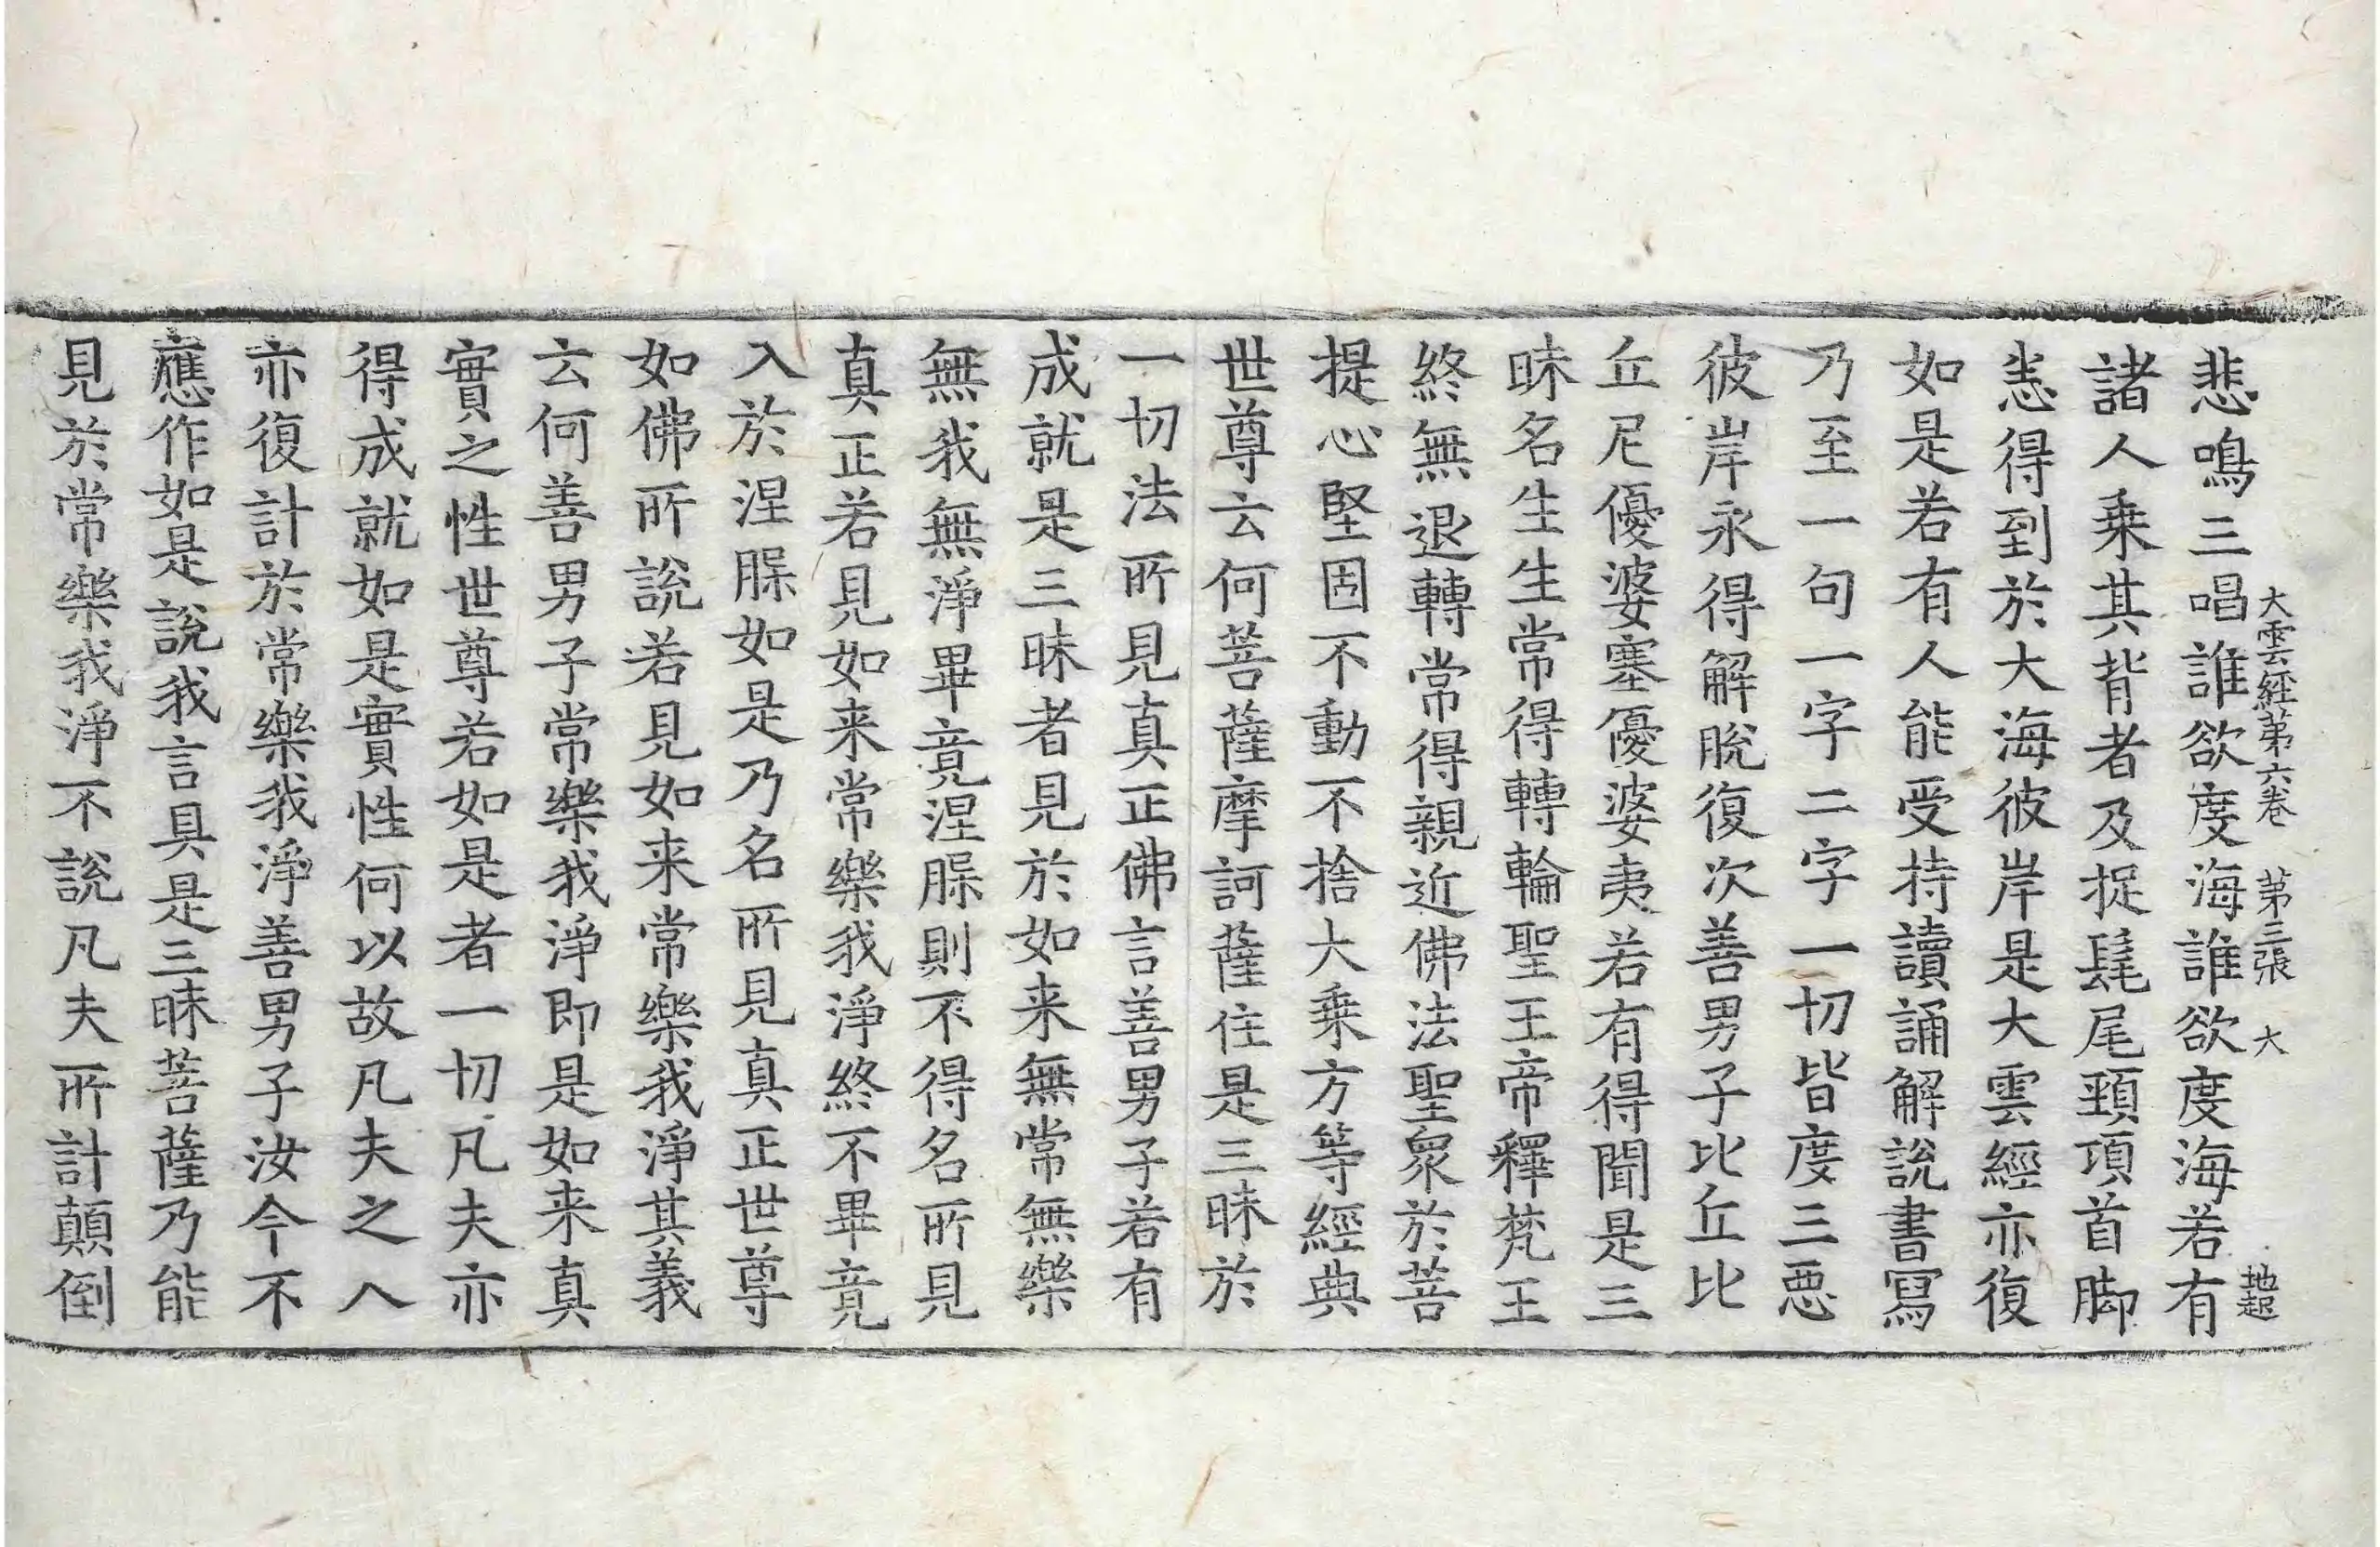 大雲經第六卷 第三張 大 地起
悲鳴三唱誰欲度海誰欲度海若有
諸人乗其背者及捉髦尾頸項首脚
悉得到於大海彼岸是大雲經亦復
如是若有人能受持讀誦解說書寫
乃至一句一字二字一切皆度三惡
彼岸永得解脫復次善男子比丘比
丘尼優婆塞優婆夷若有得聞是三
昧名生生常得轉輪聖王帝釋梵王
終無退轉常得親近佛法聖衆於菩
提心堅固不動不捨大乗方等經典
世尊云何菩薩摩訶薩住是三昧於
一切法所見真正佛言善男子若有
成就是三昧者見於如来無常無樂
無我無淨畢竟涅槃則不得名所見
真正若見如来常樂我淨終不畢竟
入於涅槃如是乃名所見真正世尊
如佛所說若見如来常樂我淨其義
云何善男子常樂我淨即是如来真
實之性世尊若如是者一切凡夫亦
得成就如是實性何以故凡夫之人
亦復計於常樂我淨善男子汝今不
應作如是說我言具是三昧菩薩乃能
見於常樂我淨不說凡夫所計顛倒